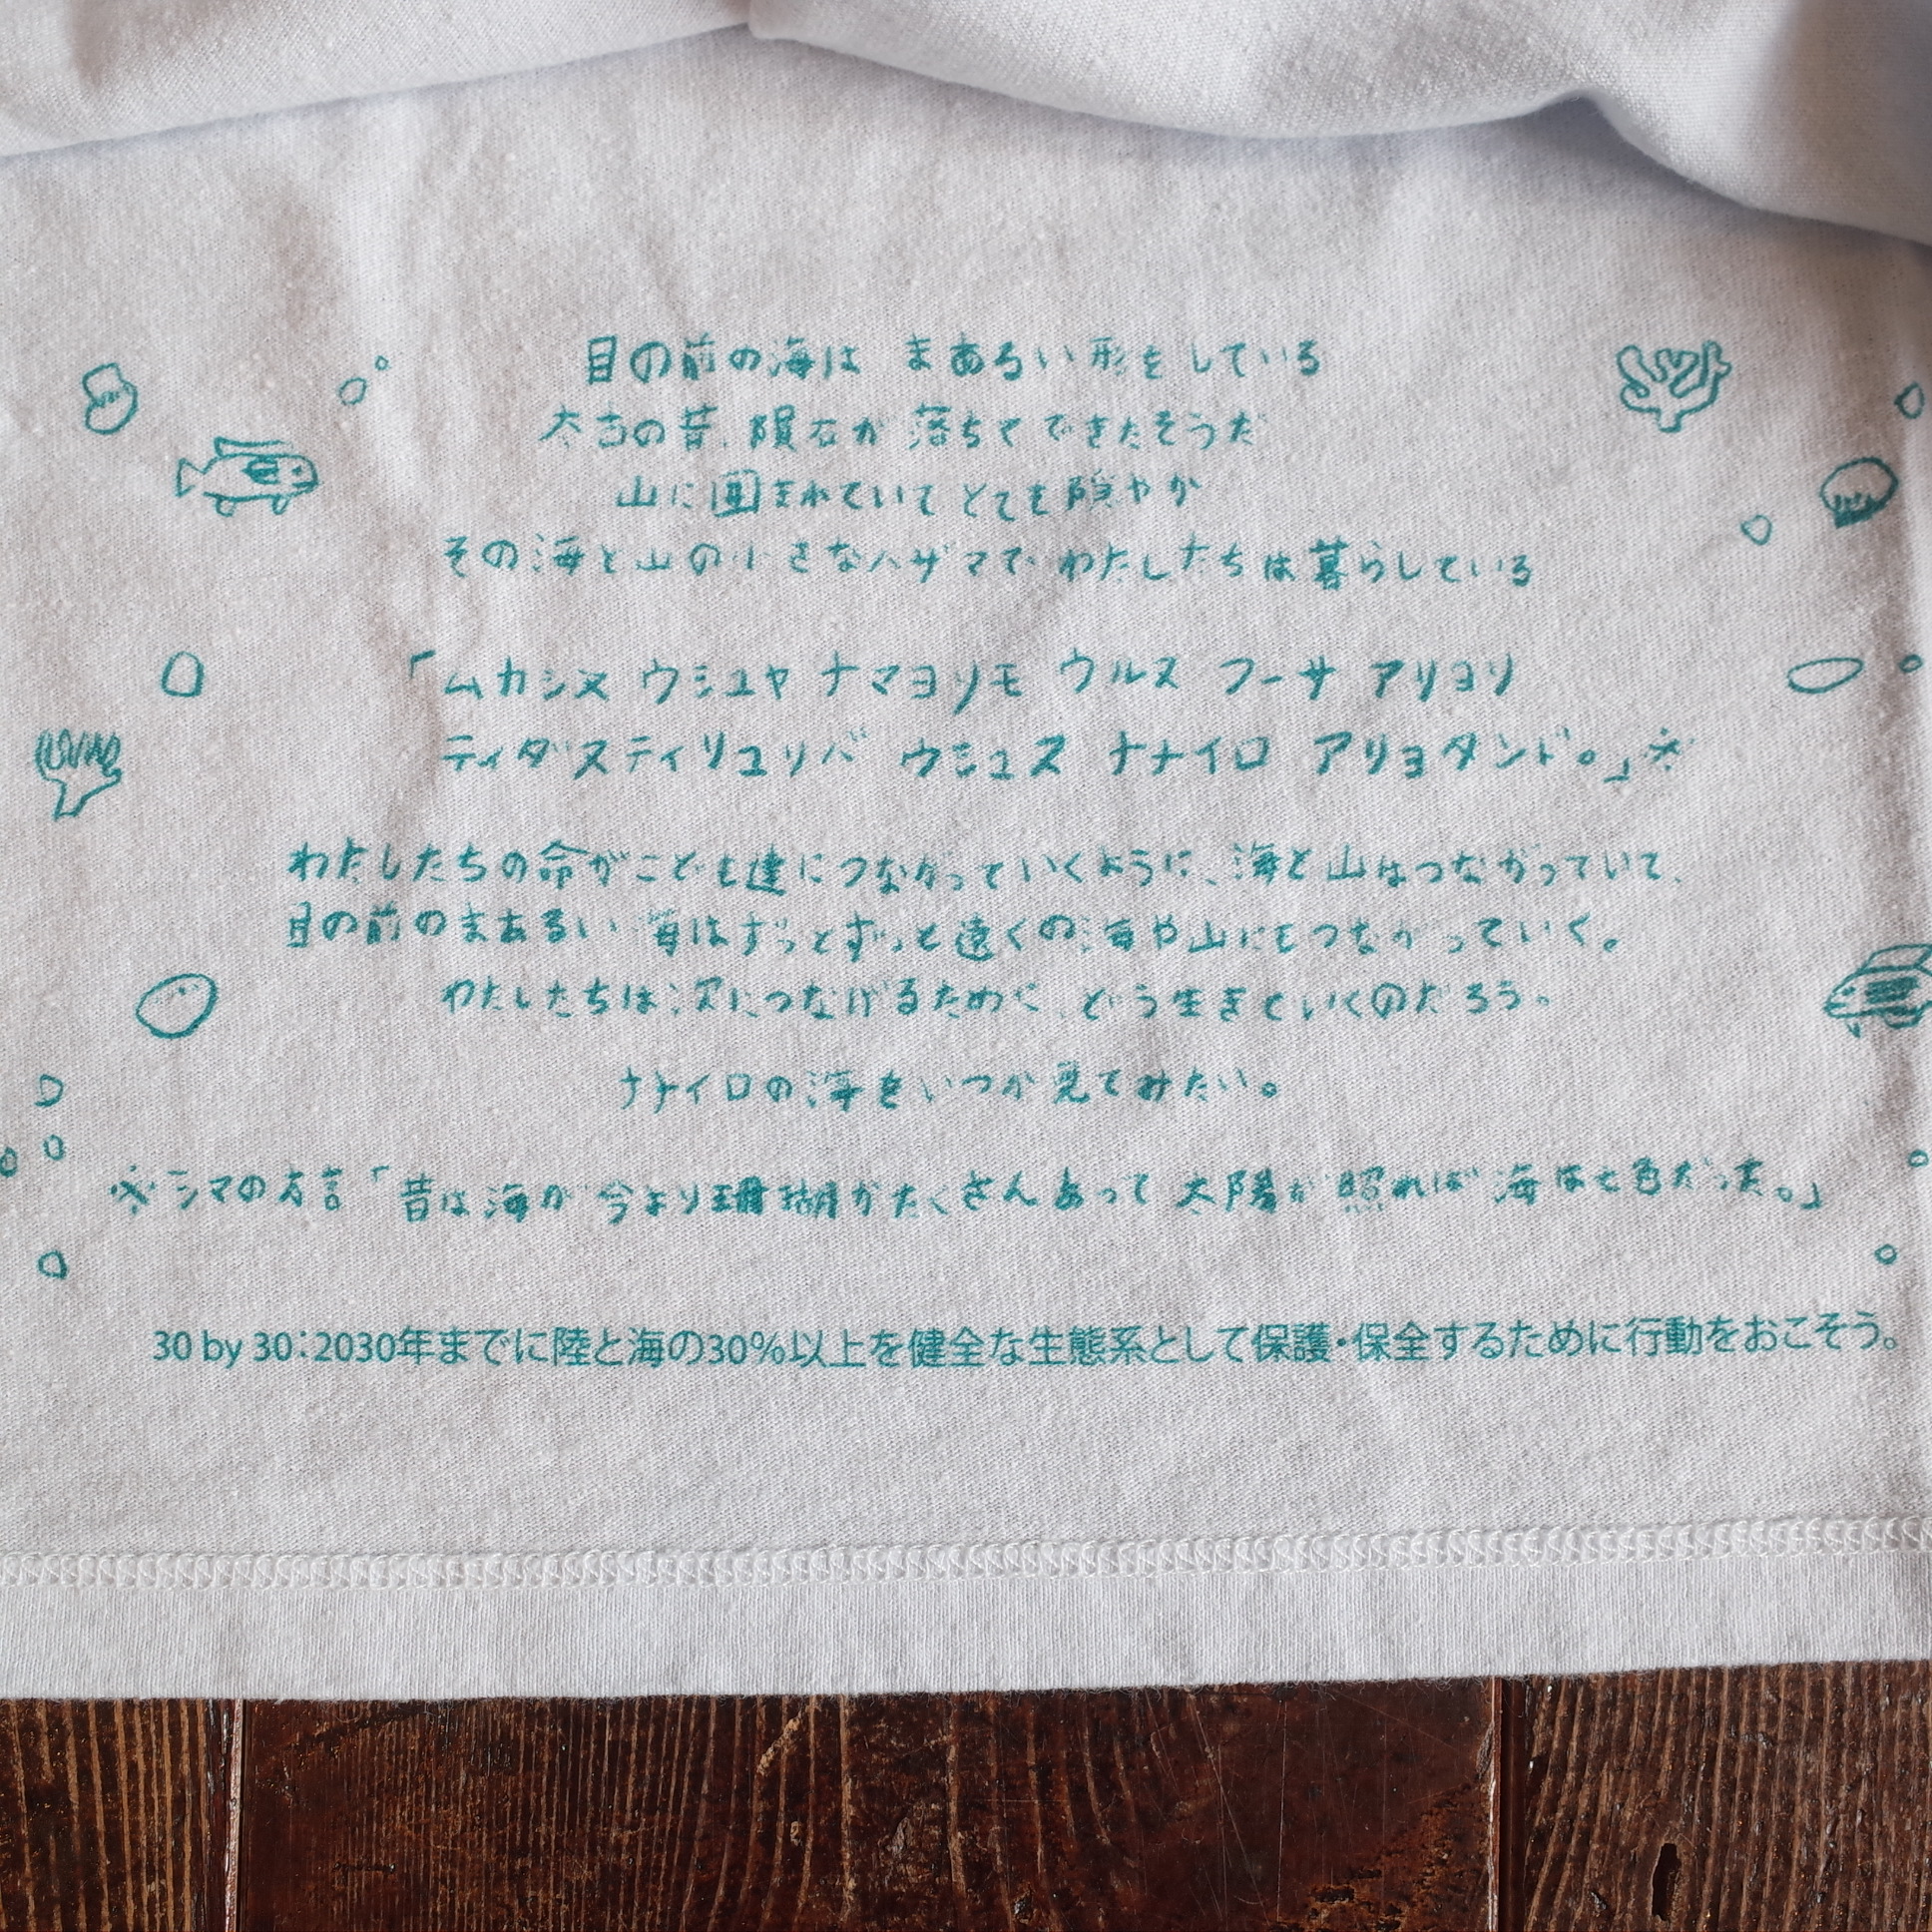 目の前の海は まあるい形をしている
太古の昔、隕石が落ちてできたそうだ
山に囲まれていてとても穏やか
その海と山の小さなハザマで わたしたちは暮らしている
「ムカシヌ ウシュヤ ナマヨリモ ウルヌ フーサ アリヨリ
ティダヌティリュリバ ウシュヌ ナナイロ アリョタンド。」※
わたしたちの命がこども達につながっていくように、海と山はつながっていて、
目の前のまあるい海はずっとずっと遠くの海や山にもつながっていく。
わたしたちは次につなげるために、どう生きていくのだろう。
ナナイロの海をいつか見てみたい。
※シマの方言「昔は海が今より珊瑚がたくさんあって太陽が照れば海は七色だった。」
30 by 30：2030年までに陸と海の30％以上を健全な生態系として保護・保全するために行動をおこそう。